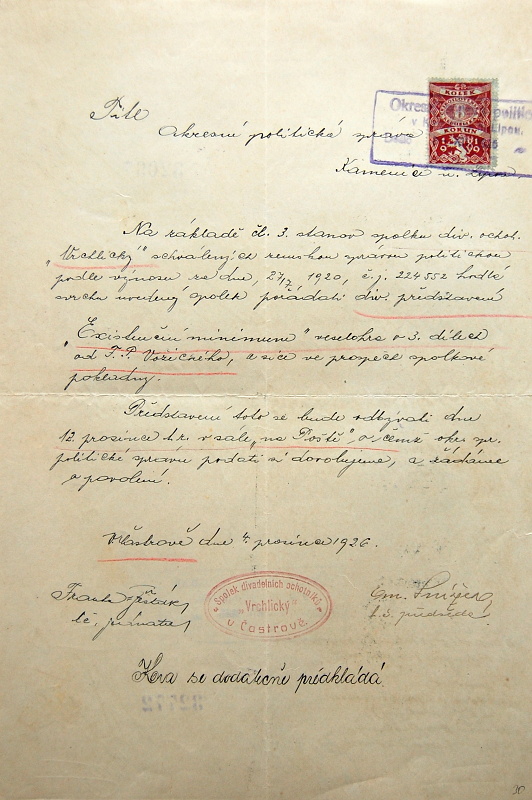 Okresní politi
v K Lípou,
KOLEK
KORUN
1919
Tit.
okresní politická správa
Kamenice n. Lipou.
Na základě čl. 3. stanov spolku div. ochot.
„Vrchlický" schválených zemskou správou politickou
podle výnosu ze dne, 27/7 1920, č.j. 224552 hodlá
svrchu uvedený spolek pořádati div. představení
„Existenční minimum" veselohra o 3. dílech
od F. P. Vořečného, a sice ve prospěch spolkové
pokladny.
Představení toto se bude odbývati dne
12. prosince t.r. v sále „na Poště", o čemž okr. spr.
politické správu podati si dovolujeme, a žádáme
o povolení.
V Častrově dne 4. prosince 1926.
Spolek divadelních ochotníků
„Vrchlický"
v Častrově
Frant.
t.č. jednatel
t.č. předseda
Hra se dodatečně předkládá
30